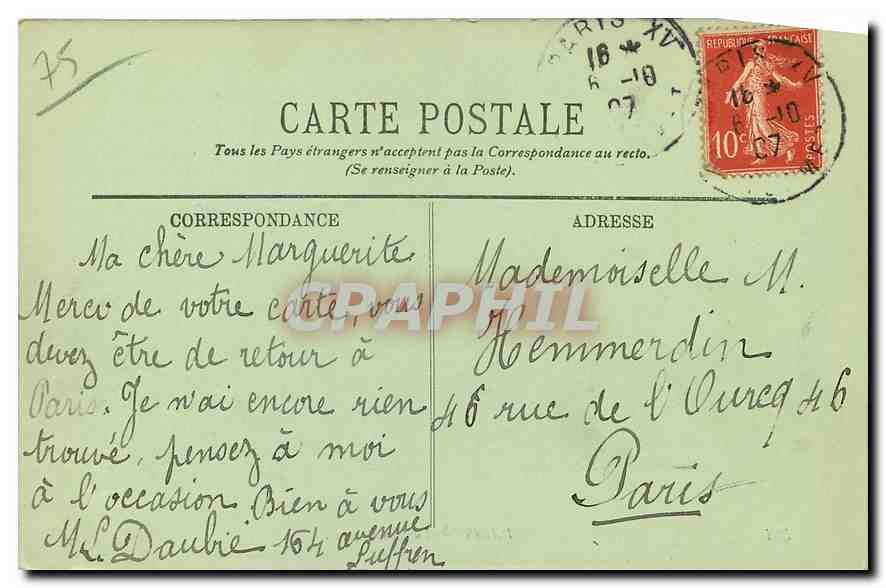 75
PARIS XV
16 *
6 -10
07
REPUBLIQUE FRANÇAISE
10c
POSTES
16 *
6 -10
07
CARTE POSTALE
Tous les Pays étrangers n'acceptent pas la Correspondance au recto.
(Se renseigner à la Poste).
CORRESPONDANCE
Ma chère Marguerite
Merci de votre carte, vous
devez être de retour à
Paris. Je n'ai encore rien
trouvé, pensez à moi
à l'occasion Bien à vous
M L. Daubié 164 avenue
Suffren
ADRESSE
Mademoiselle M.
Hemmerdin
46 rue de l'Ourcq 46
Paris
CPAPHIL